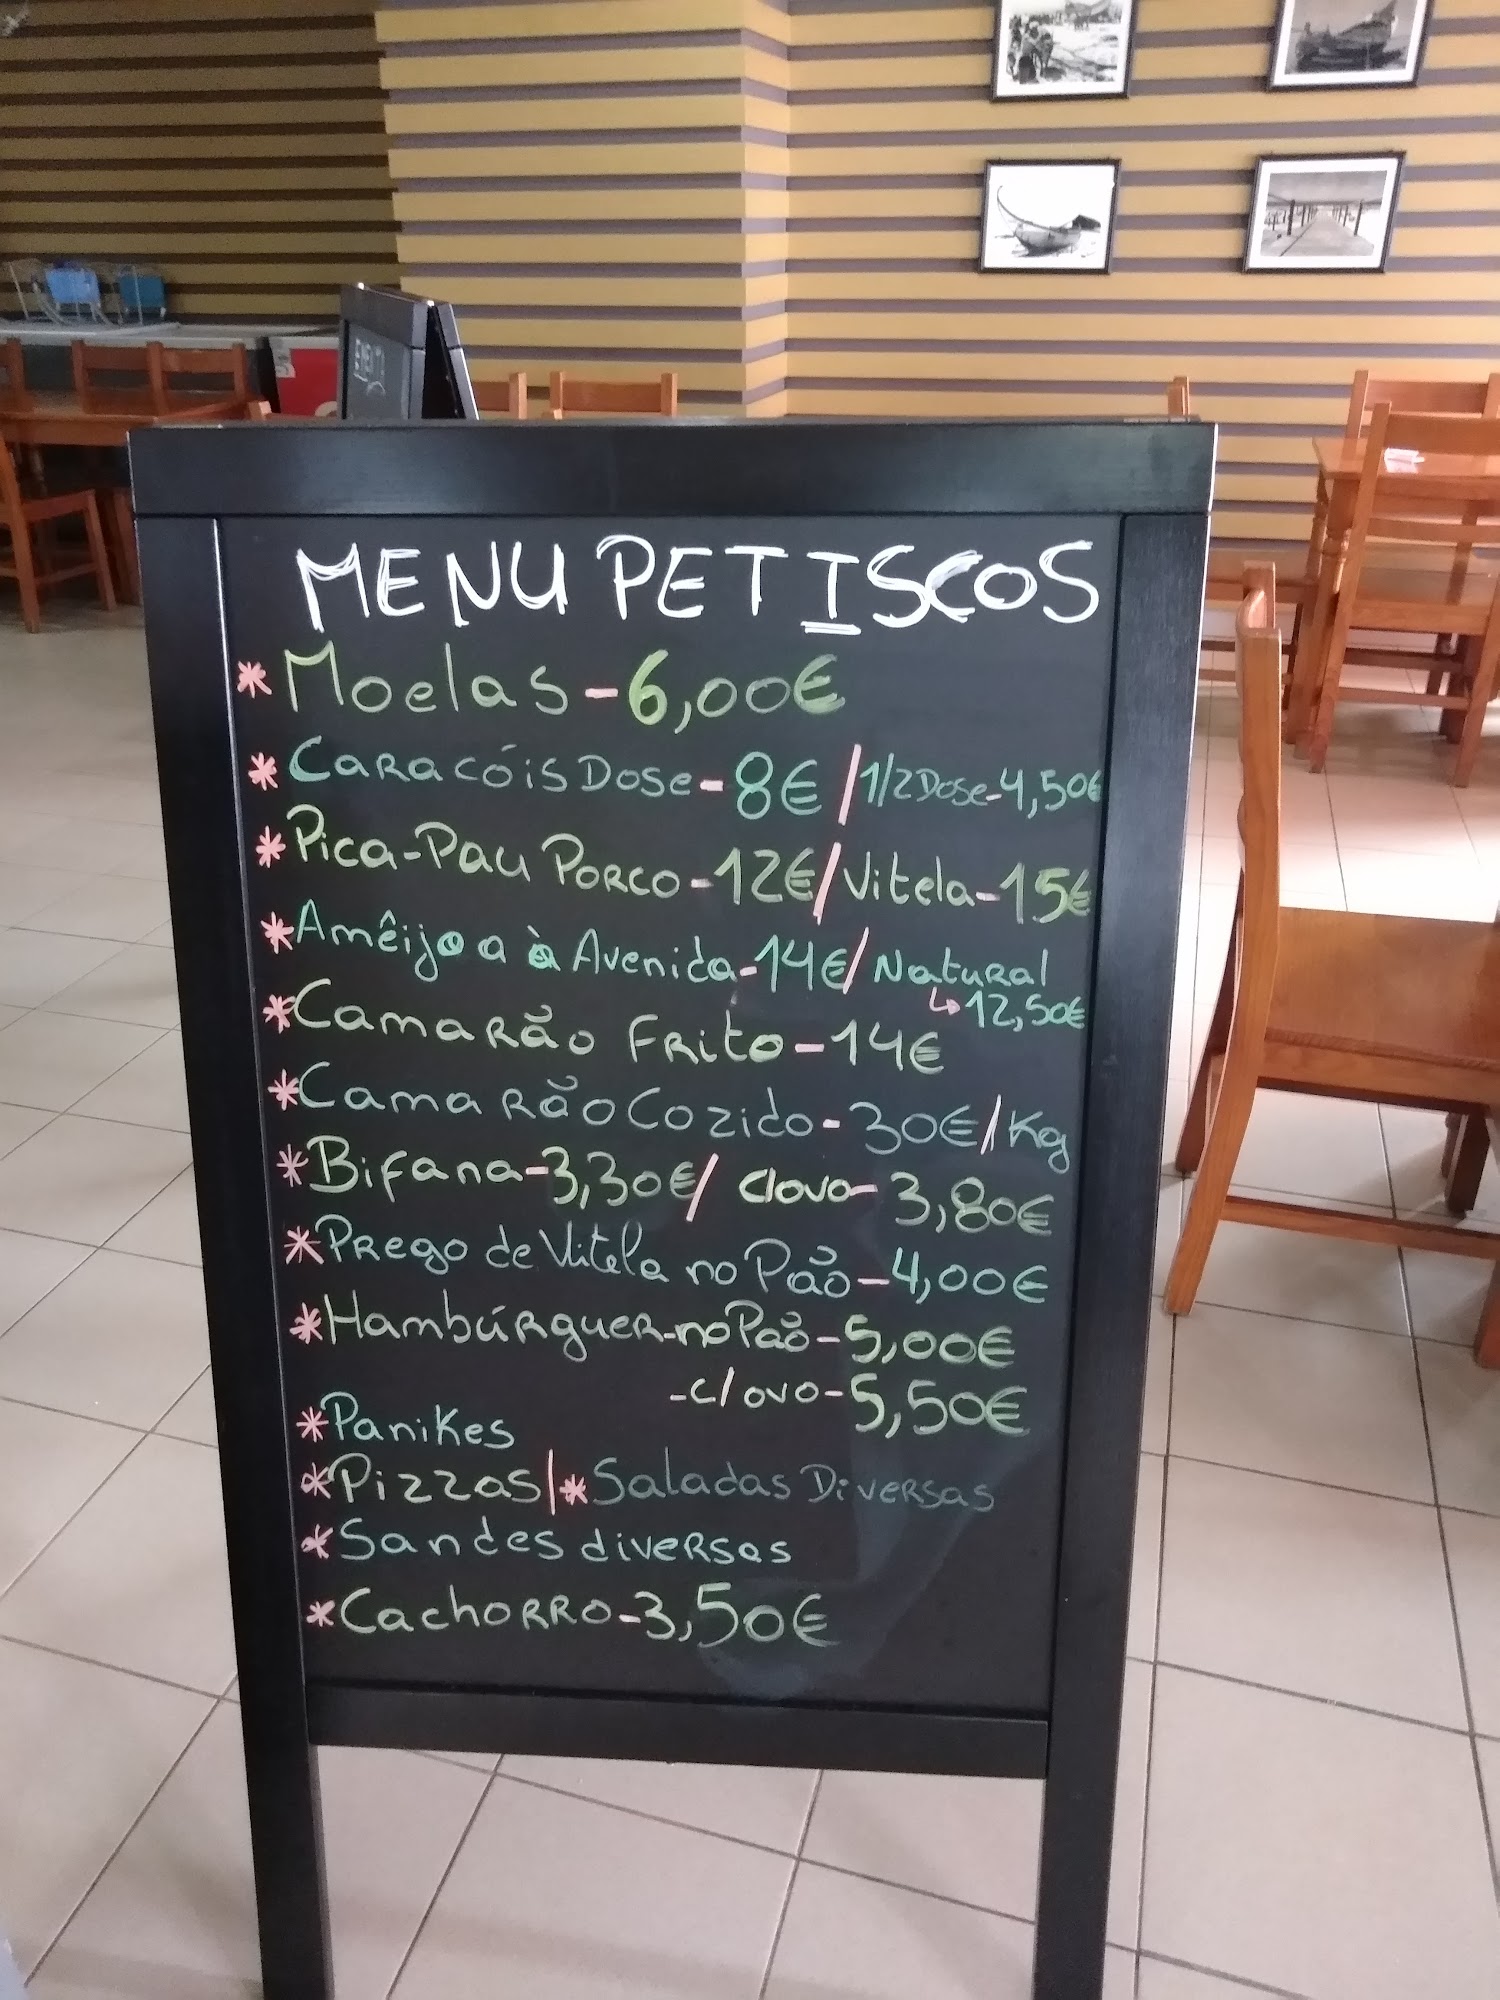 EMENTA
MENU PETISCOS
* Moelas - 6,00€
* Caracóis Dose - 8€ / 1/2 Dose - 4,50€
* Pica-Pau Porco - 12€ / Vitela - 15€
* Amêijoa à Avenida - 14€ / Natural
↳ 12,50€
* Camarão Frito - 14€
* Camarão Cozido - 30€ / Kg
* Bifana - 3,30€ / c/ovo - 3,80€
* Prego de Vitela no Pão - 4,00€
* Hambúrguer - no Pão - 5,00€
- c/ ovo - 5,50€
* Panikes
* Pizzas / * Saladas Diversas
* Sandes diversas
* Cachorro - 3,50€